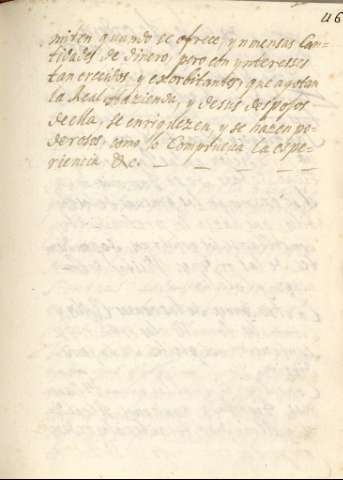 46
miten quando se ofrece, ynmensas Can-
tidades de dinero, pero con yntereses
tan crecidos y exorbitantes, que agotan
la Real Hazienda, y de sus despojos
de ella, se enriquezen, y se hazen po-
derosos, como lo Comprueua la espe-
riencia &c.